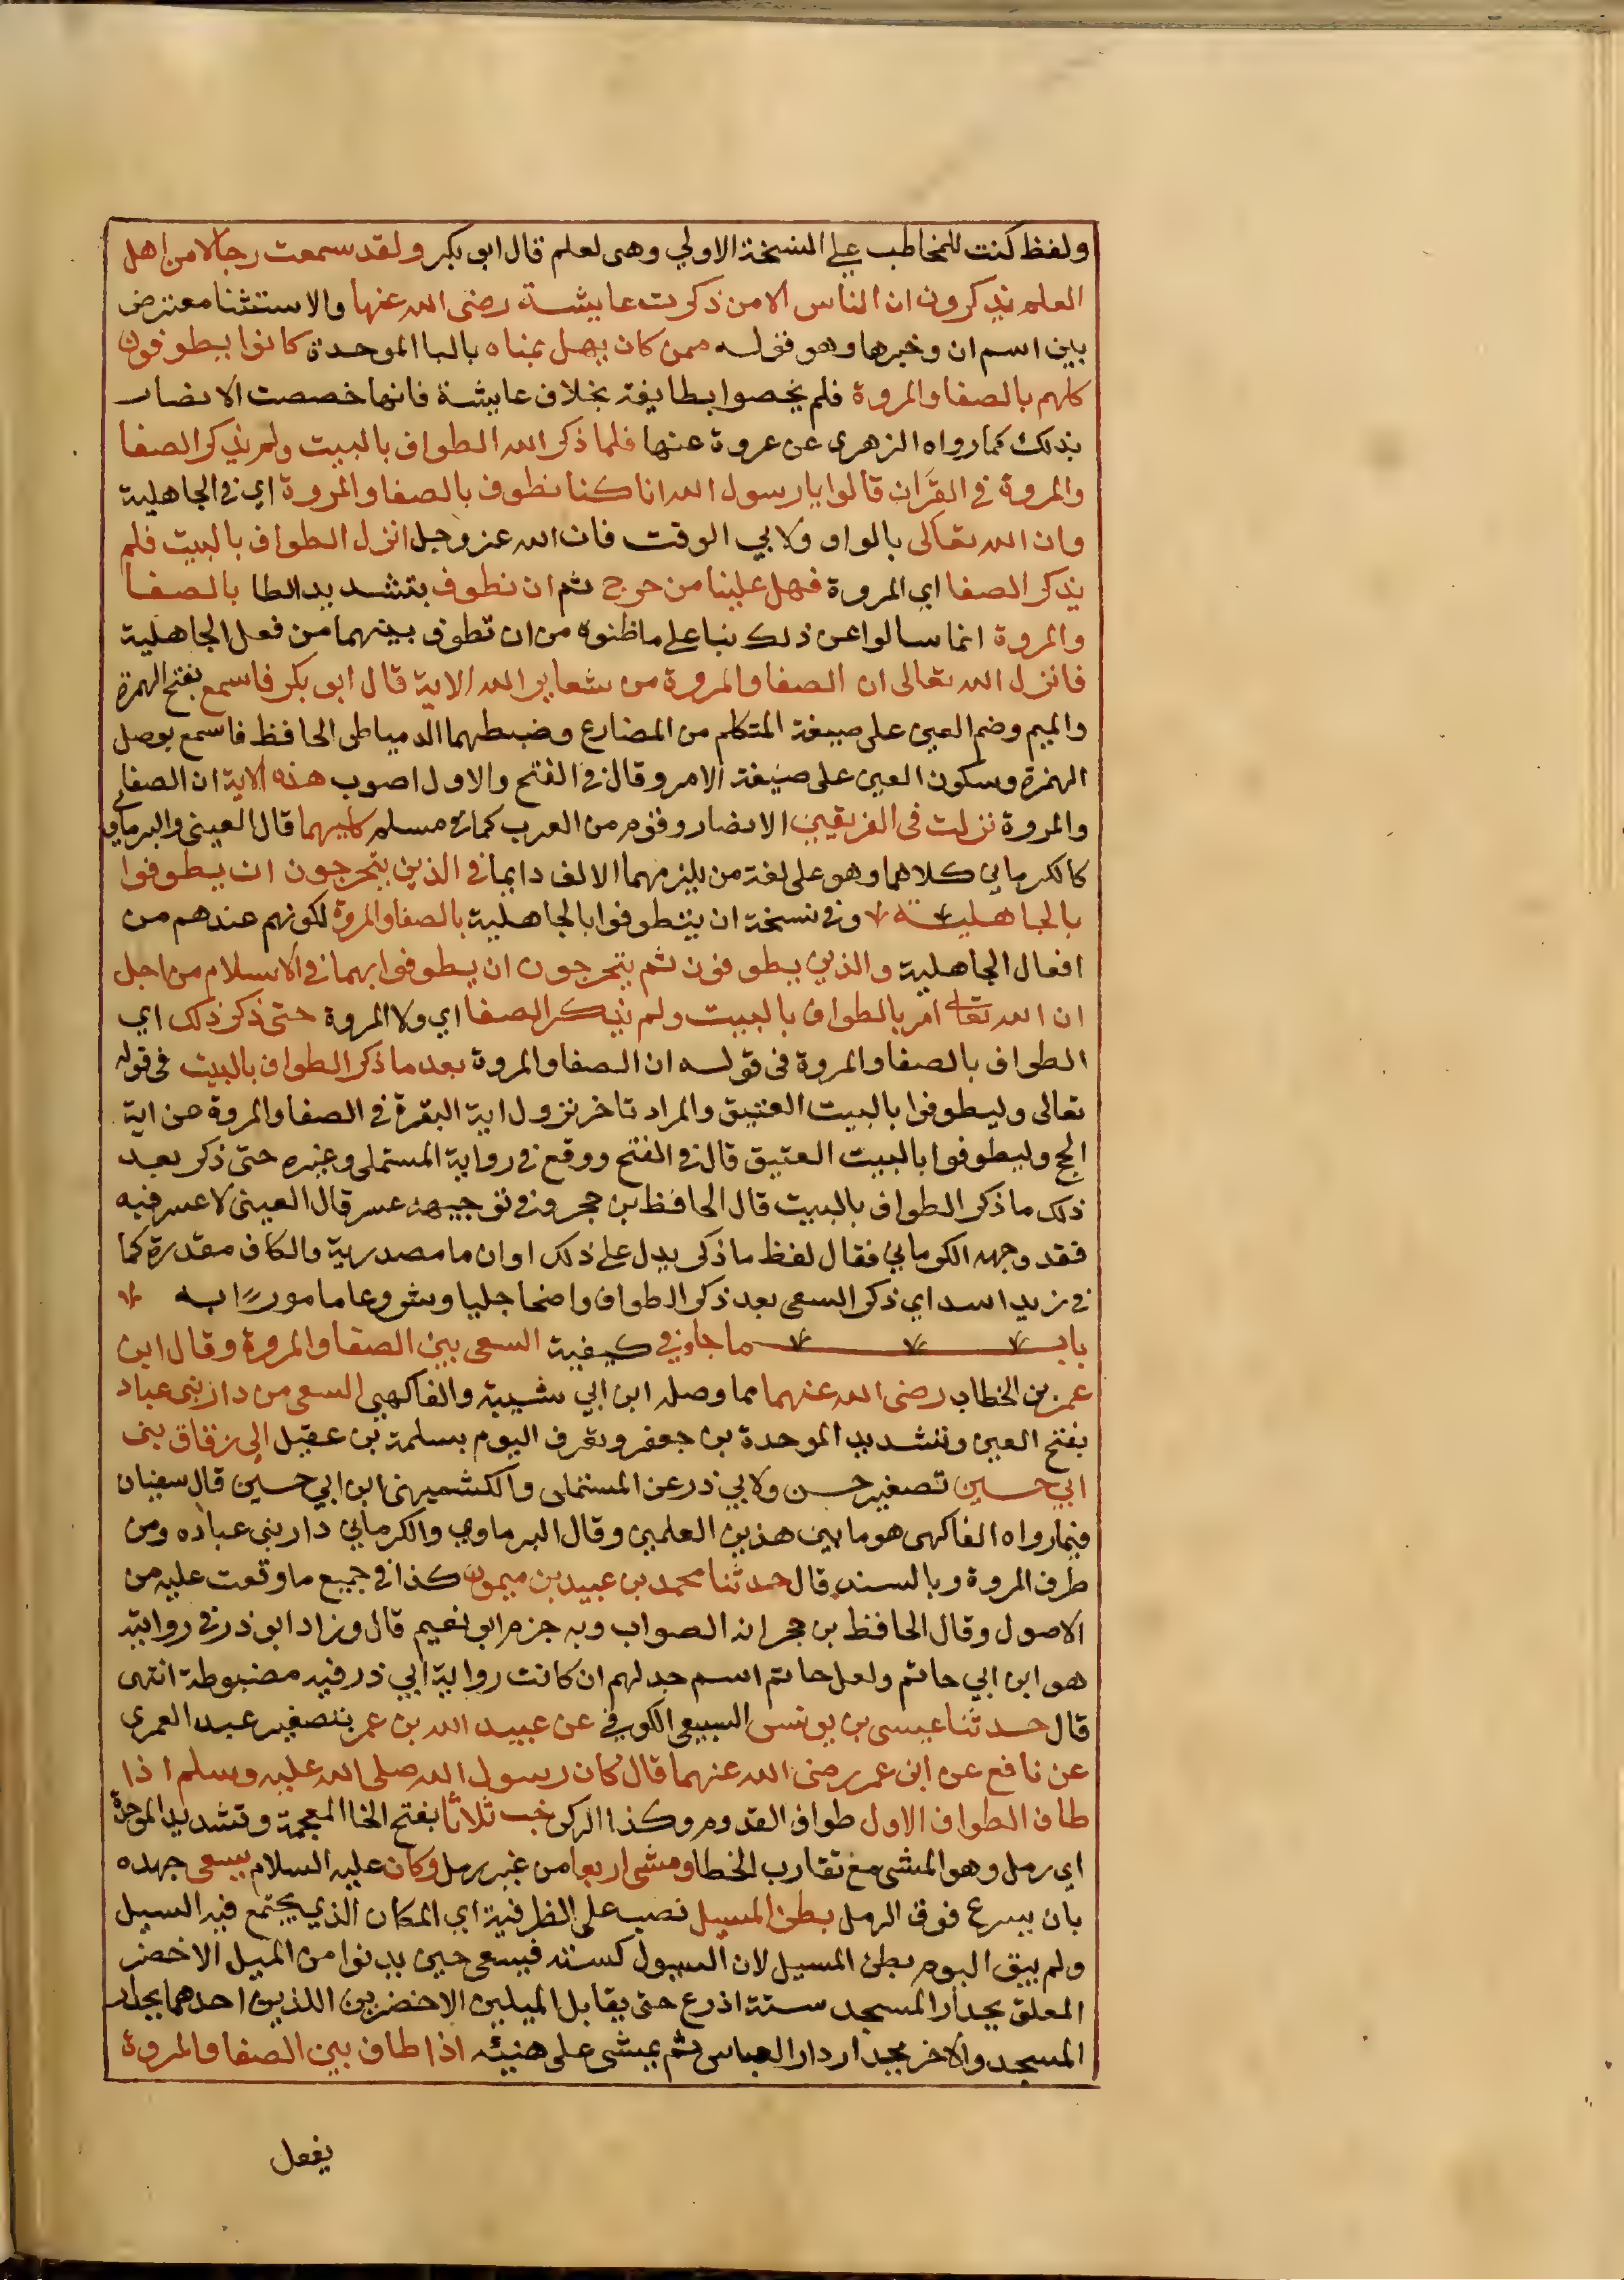 ولفظ كنت للمخاطب على النسخة الاولي وهى لعلم قال ابو بكر ولقد سمعت رجالا من اهل
العلم يذكرون ان الناس الا من ذكرت عايشة رضى الله عنها والاستثنا معترض
بين اسم ان وخبرها وهو قوله ممن كان يهل بمناه بالبا الموحدة كانوا يطوفون
كلهم بالصفا والمروة فلم يخصوا بطايفة بخلاف عايشة فانها خصصت الانصار
بذلك كما رواه الزهرى عن عروة عنها فلما ذكر الله الطواف بالبيت ولم يذكر الصفا
والمروة في القرآن قالوا يا رسول الله انا كنا نطوف بالصفا والمروة اي في الجاهلية
وان الله تعالى بالواو ولابي الوقت فان الله عز وجل انزل الطواف بالبيت فلم
يذكر الصفا اي المروة فهل علينا من حرج ثم ان نطوف بتشديد الطا بالصفا
والمروة انما سالوا عن ذلك بنا على ماظنوه من ان تطوف بينهما من فعل الجاهلية
فانزل الله تعالى ان الصفا والمروة من شعاير الله الاية قال ابو بكر فاسمع بفتح الهمزة
والميم وضم العين على صيغة المتكلم من المضارع وضبطهما الدمياطى الحافظ فاسمع بوصل
الهمزة وسكون العين على صيغة الامر وقال في الفتح والاول اصوب هذه الاية ان الصفا
والمروة نزلت في الفريقين الانصار وقوم من العرب كما في مسلم كليهما قال العينى والبرماوي
كالكرماني كلاهما وهو على لغة من يلزمهما الالف دايما في الذين يتحرجون ان يطوفوا
بالجاهلية وفي نسخة ان يتطوفوا بالجاهلية بالصفا والمروة لكونهم عندهم من
افعال الجاهلية والذين يطوفون ثم يتحرجون ان يطوفوا بهما في الاسلام من اجل
ان الله تعالى امر بالطواف بالبيت ولم يذكر الصفا اي ولا المروة حتى ذكر ذلك اي
الطواف بالصفا والمروة فى قوله ان الصفا والمروة بعد ما ذكر الطواف بالبيت فى قوله
تعالى وليطوفوا بالبيت العتيق والمراد تاخر نزول اية البقرة في الصفا والمروة عن اية
الحج وليطوفوا بالبيت العتيق قال في الفتح ووقع في رواية المستملى وغيره حتى ذكر بعد
ذلك ما ذكر الطواف بالبيت قال الحافظ بن حجر وفي توجيهه عسر قال العينى لا عسر فيه
فقد وجهه الكرماني فقال لفظ ما ذكر بدل على ذلك او ان ما مصدرية والكاف مقدرة كما
في زيد اسد اي ذكر السعى بعد ذكر الطواف واضحا جليا ومشروعا مامورا به
باب ما جاء في كيفية السعى بين الصفا والمروة وقال ابن
عمر بن الخطاب رضى الله عنهما مما وصله ابن ابي شيبة والفاكهي السعى من دار بنى عباد
بفتح العين وتشديد الموحدة بن جعفر وتعرف اليوم بسلمة بن عقيل الى زقاق بنى
ابي حسين تصغير حسن ولابي ذر عن المستملى والكشميهنى ابن ابي حسين قال سفيان
فيما رواه الفاكهى هو ما بين هذين العلمين وقال البرماوي والكرماني دار بنى عباده ومن
طرف المروة وبالسند قال حدثنا محمد بن عبيد بن ميمون كذا في جميع ما وقعت عليه من
الاصول وقال الحافظ بن حجر انه الصواب وبه جزم ابو نعيم قال وزاد ابو ذر في روايته
هو ابن ابي حاتم ولعل حاتم اسم جد لهم ان كانت رواية ابي ذر فيه مضبوطة انتهى
قال حدثنا عيسى بن يونس السبيعى الكوفي عن عبيد الله بن عمر بتصغير عبد العمرى
عن نافع عن ابن عمر رضى الله عنهما قال كان رسول الله صلى الله عليه وسلم اذا
طاف الطواف الاول طواف القدوم وكذا الركن خب ثلاثا بفتح الخا المعجمة وتشديد الموحدة
اي رمل وهو المشى مع تقارب الخطا ومشى اربعا من غير رمل وكان عليه السلام يسعى جهده
بان يسرع فوق الرمل بطن المسيل نصب على الظرفية اي المكان الذي يجتمع فيه السيل
ولم يبق اليوم بطن المسيل لان السيول كسته فيسعى حين يدنوا من الميل الاخضر
المعلق بجدار المسجد ستة اذرع حتى يقابل الميلين الاخضرين اللذين احدهما بجدار
المسجد والاخر بجدار دار العباس ثم يمشى على هنيئه اذا طاف بين الصفا والمروة
يفعل